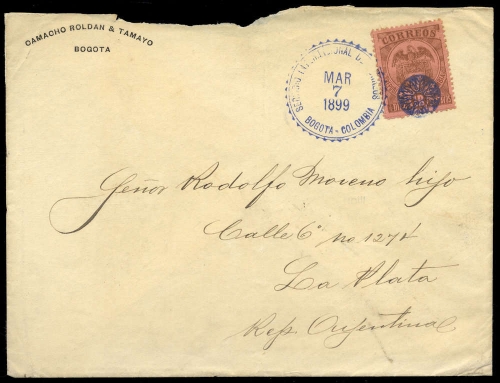 CAMACHO ROLDAN & TAMAYO
BOGOTA
CORREOS
MAR
7
1899
BOGOTA - COLOMBIA
Señor Rodolfo Moreno hijo
Calle 6ª no. 1274
La Plata
Rep. Argentina